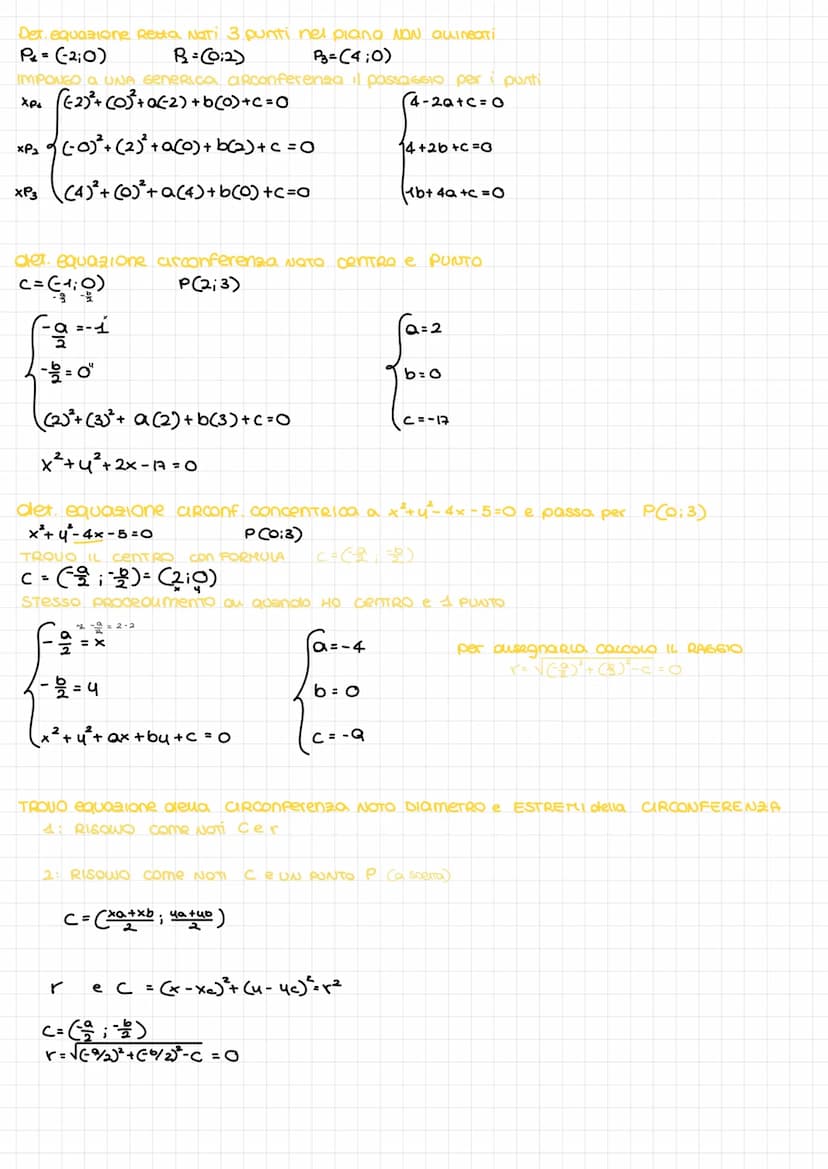 Det. equazione Retta Noti 3 punti nel piano NON allineati
P₁ = (-2;0) P₂ = (0;2) P₃ = (4;0)
IMPONGO a UNA Generica circonferenza il passaggio per i punti
xP₁ (-2)²+(0)²+a(-2)+b(0)+c=0 4-2a+c=0
xP₂ (-0)²+(2)²+a(0)+b(2)+c=0 4+2b+c=0
xP₃ (4)²+(0)²+a(4)+b(0)+c=0 16+4a+c=0
det. equazione circonferenza NOTO CENTRO e PUNTO
C=(-1;0) P(2;3)
-a/2 -b/2
-a/2 = -1 a=2
-b/2 = 0 b=0
(2)²+(3)²+a(2)+b(3)+c=0 c=-17
x²+y²+2x-17=0
det. equazione circonf. concentrica a x²+y²-4x-5=0 e passa per P(0;3)
x²+y²-4x-5=0 P(0;3)
TROVO IL CENTRO con FORMULA C=(-a/2; -b/2)
C=(-a/2; -b/2)=(2;0)
x y
STESSO PROCEDIMENTO di quando HO CENTRO e 1 PUNTO
-a/2 = x a=-4 per disegnarla CALCOLO IL RAGGIO
r=√(-a/2)²+(b/2)²-c = 0
-b/2 = y b=0
x²+y²+ax+by+c=0 c=-9
TROVO equazione della CIRConferenza NOTO Diametro e ESTREMI della CIRCONFERENZA
1: RISOLVO come Noti C e r
2: RISOLVO come Noti C e UN PUNTO P (a scelta)
C=(xa+xb/2; ya+yb/2)
r e C = (x-xc)²+(y-yc)²=r²
C=(-a/2; -b/2)
r=√(-a/2)²+(-b/2)²-c = 0